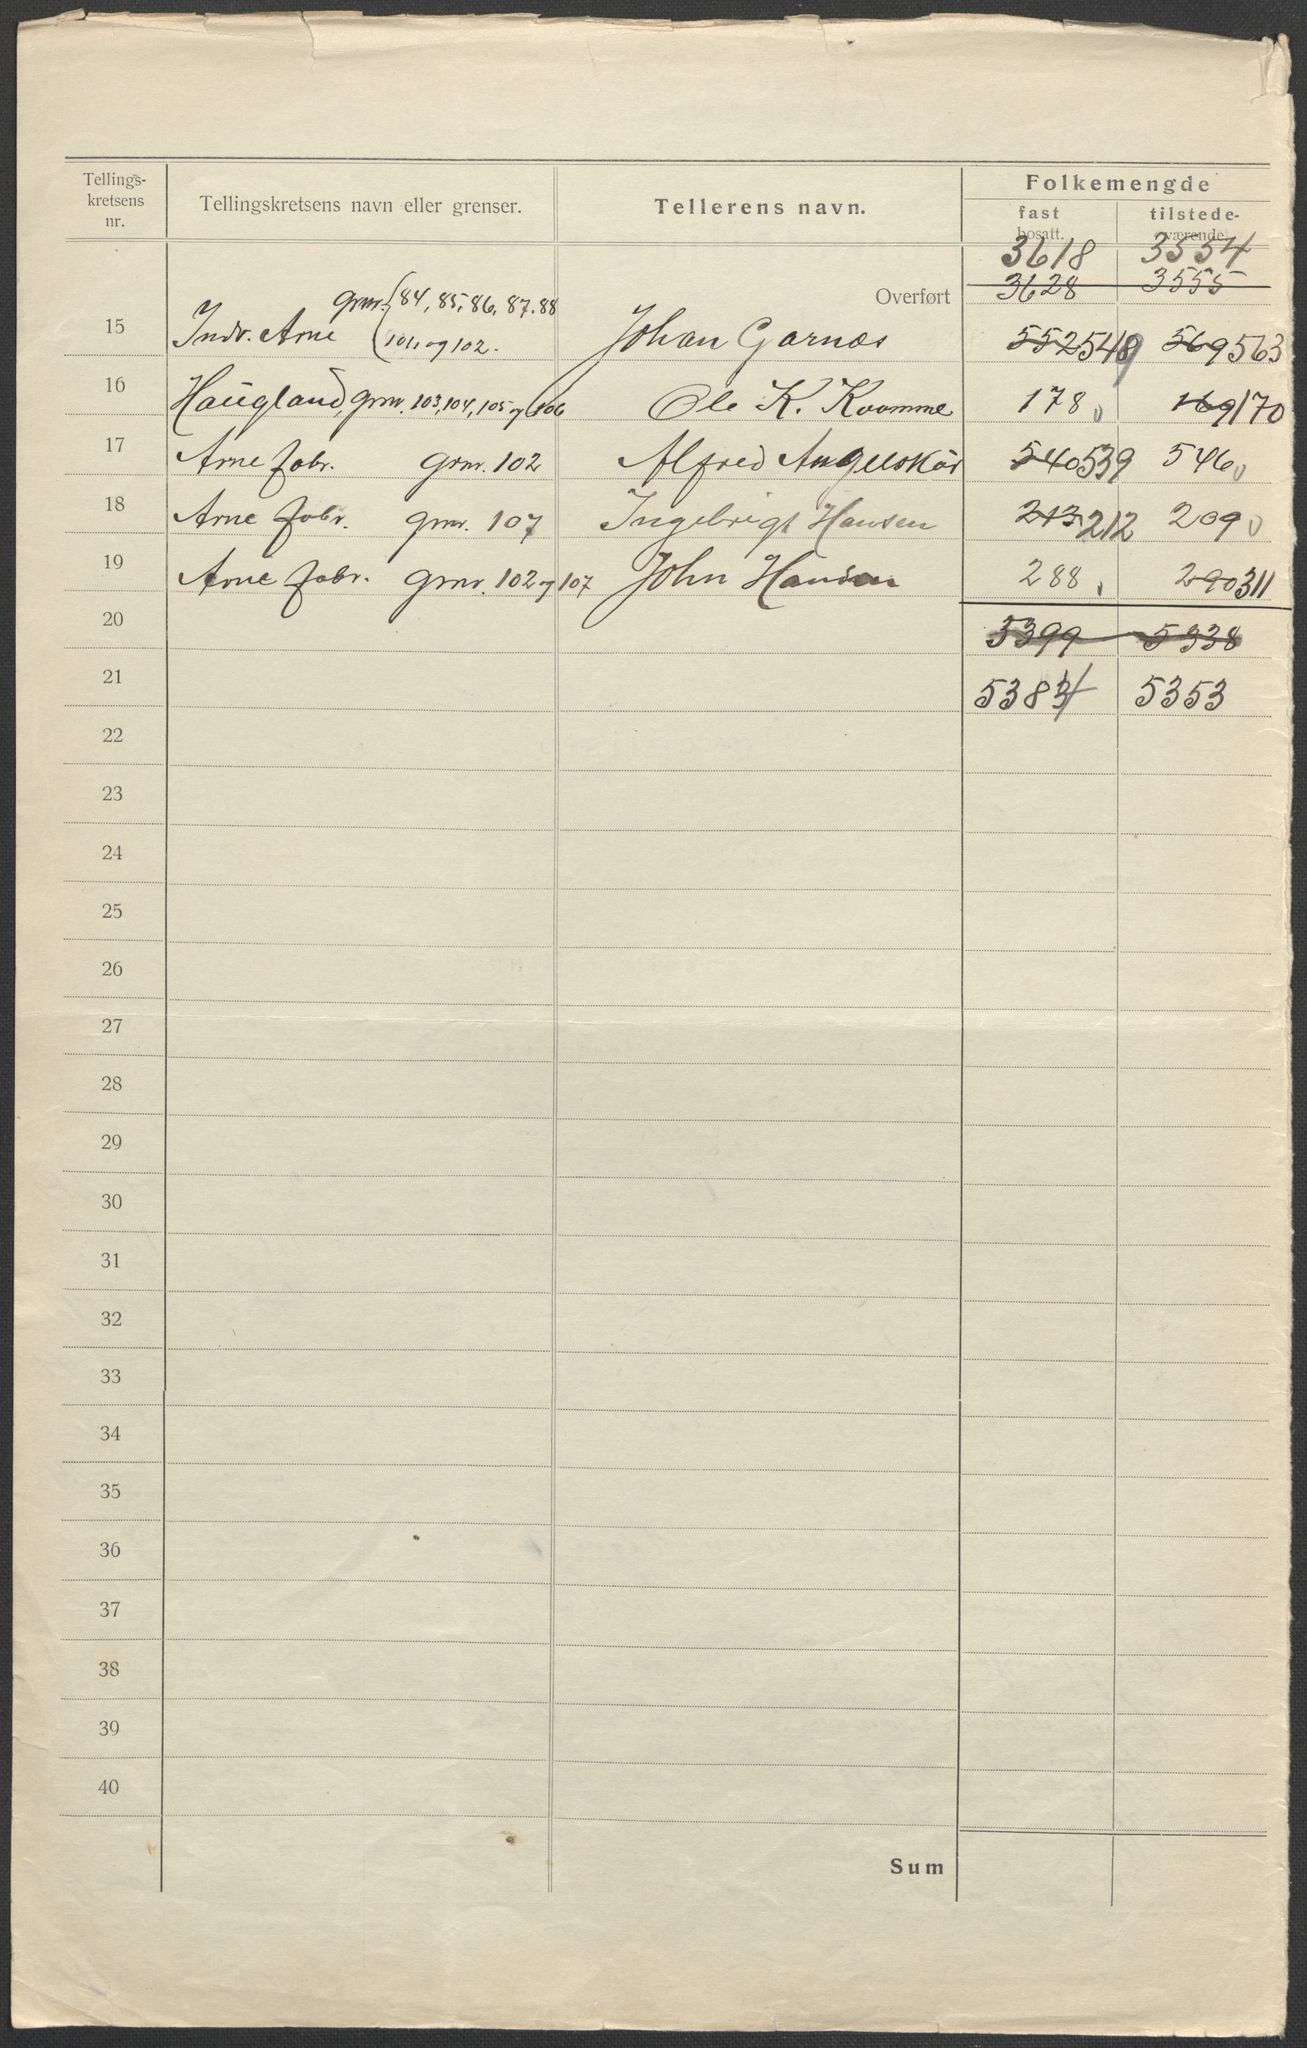 Tellings-
kretsens
nr.
Tellingskretsens navn eller grenser.
Tellerens navn.
Folkemengde
fast
bosatt.
tilstede-
værende
3618 3554
Overført 3628 3555
grnr. (84, 85, 86, 87, 88
15 Indr. Arne (101, og 102. Johan Garnæs 552 549 569 563
16 Haugland, grnr. 103, 104, 105 og 106 Ole K. Kvamme 178 169 170
17 Arne fabr. grnr. 102 Alfred Angelskår 540 539 546
18 Arne fabr. grnr. 107 Ingebrigt Hansen 213 212 209
19 Arne fabr. grnr. 102 og 107 John Hansen 288 290 311
20 5399 5338
21 5384 5353
22
23
24
25
26
27
28
29
30
31
32
33
34
35
36
37
38
39
40
Sum